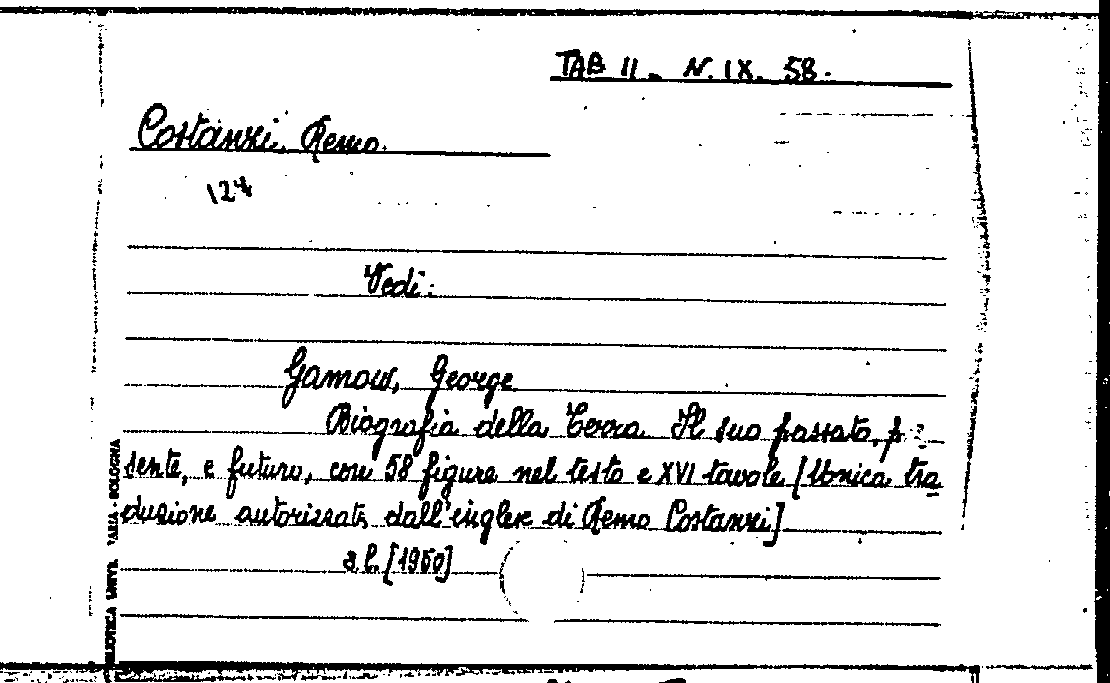 TAB II - N. IX. 58.
Costanzi, Remo.
124
Vedi:
Gamow, George
Biografia della Terra. Il suo passato, p
sente, e futuro, con 58 figure nel testo e XVI tavole [Unica tra
duzione autorizzata dall'inglese di Remo Costanzi]
s.l. [1950]
BIBLIOTECA UNIV. BOLOGNA